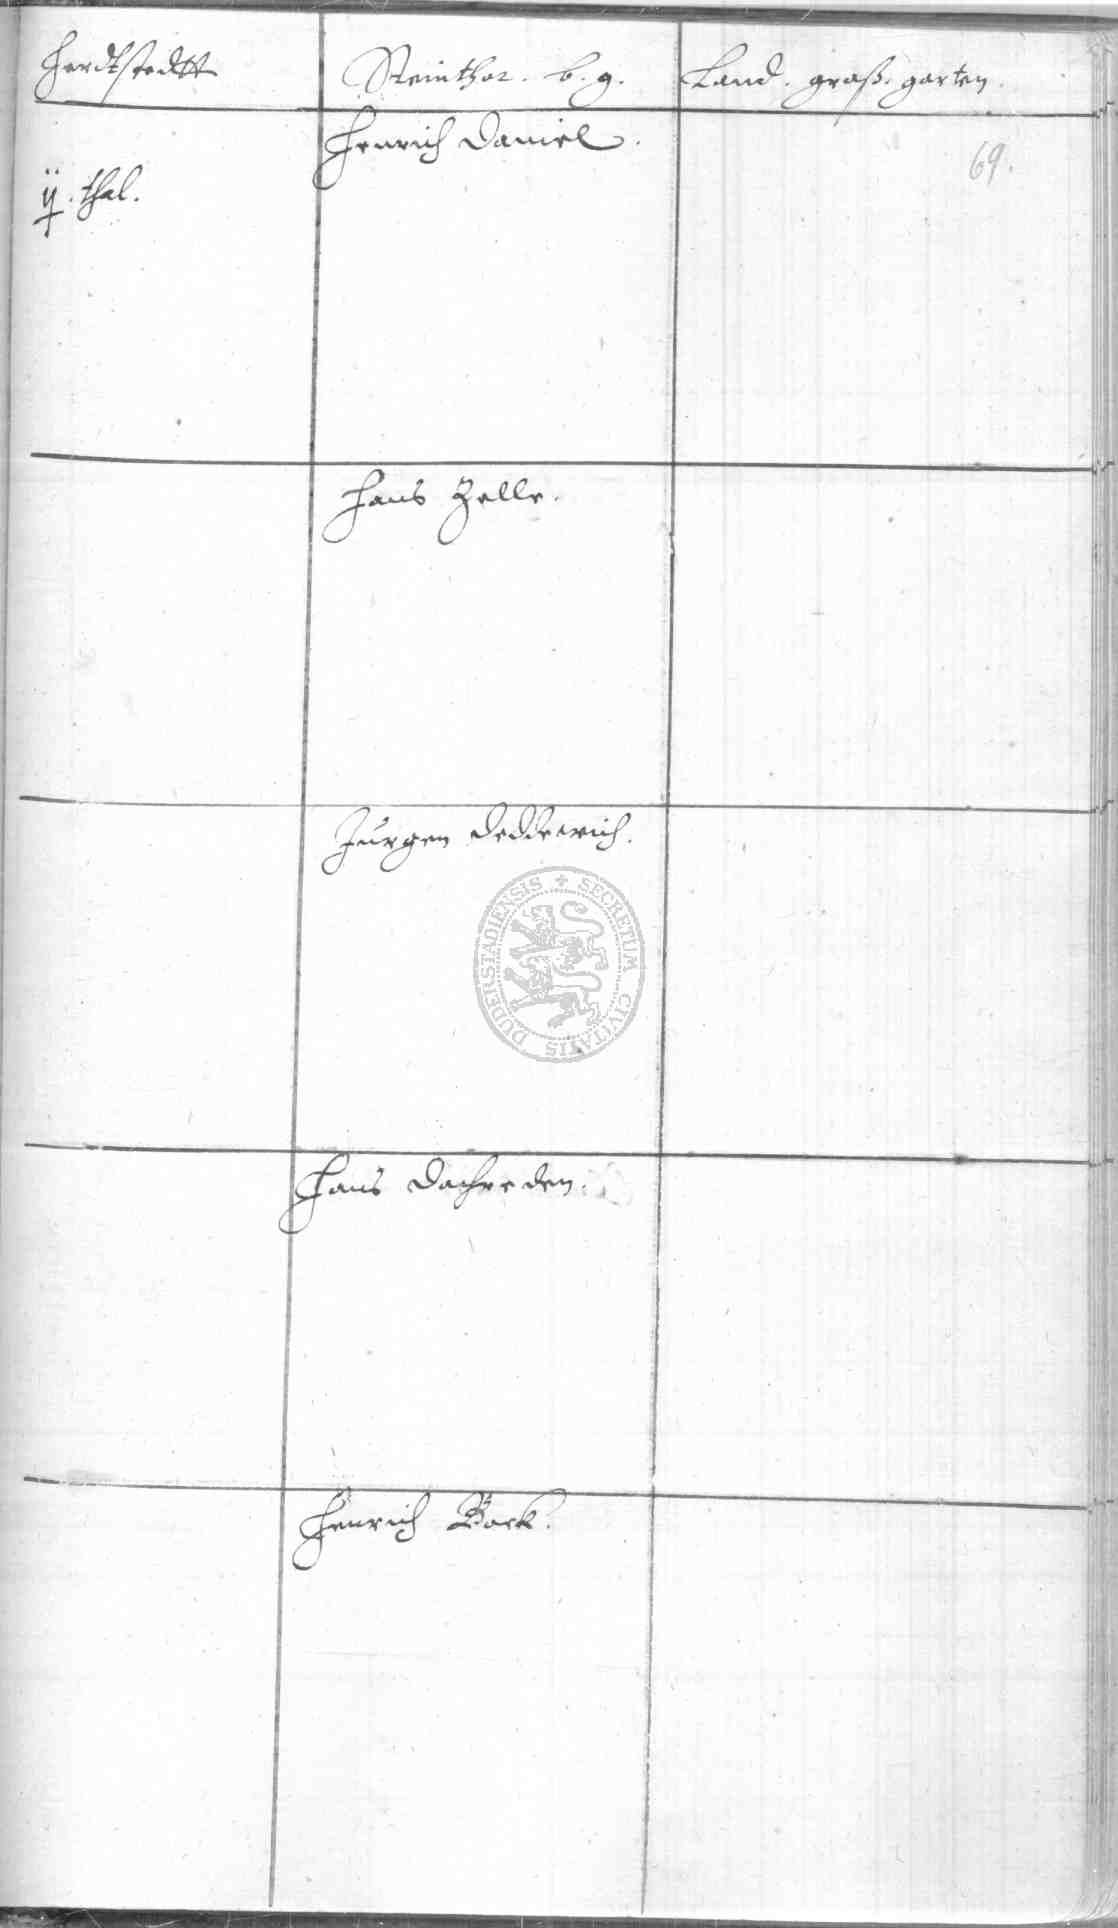 Herdtstedt
Steinthor. b. g.
Land. graß. garten.
69.
Henrich Daniel.
ij. thal.
Hans Zelle.
Jurgen Dedderich.
SECRETUM CIVITATIS DUDERSTADIENSIS
Hans Dachreden.
Henrich Bock.